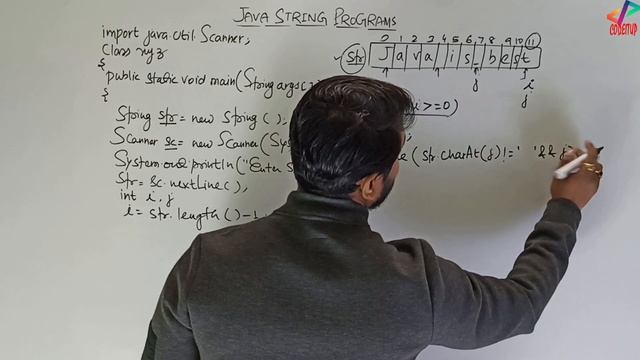 JAVA STRING PROGRAMS
CODEITUP
import java.util.Scanner;
Class xyz
{
public static void main(String args[
{
String str = new String ( );
Scanner sc = new Scanner(Sys
System.out.println("Enter S
Str = sc.nextLine( );
int i, j
i = str.length ( )-1
0 1 2 3 4 5 6 7 8 9 10 11
Str J a v a i s b e s t
j i
j
i >=0)
(str.charAt(j)!=' ' && j